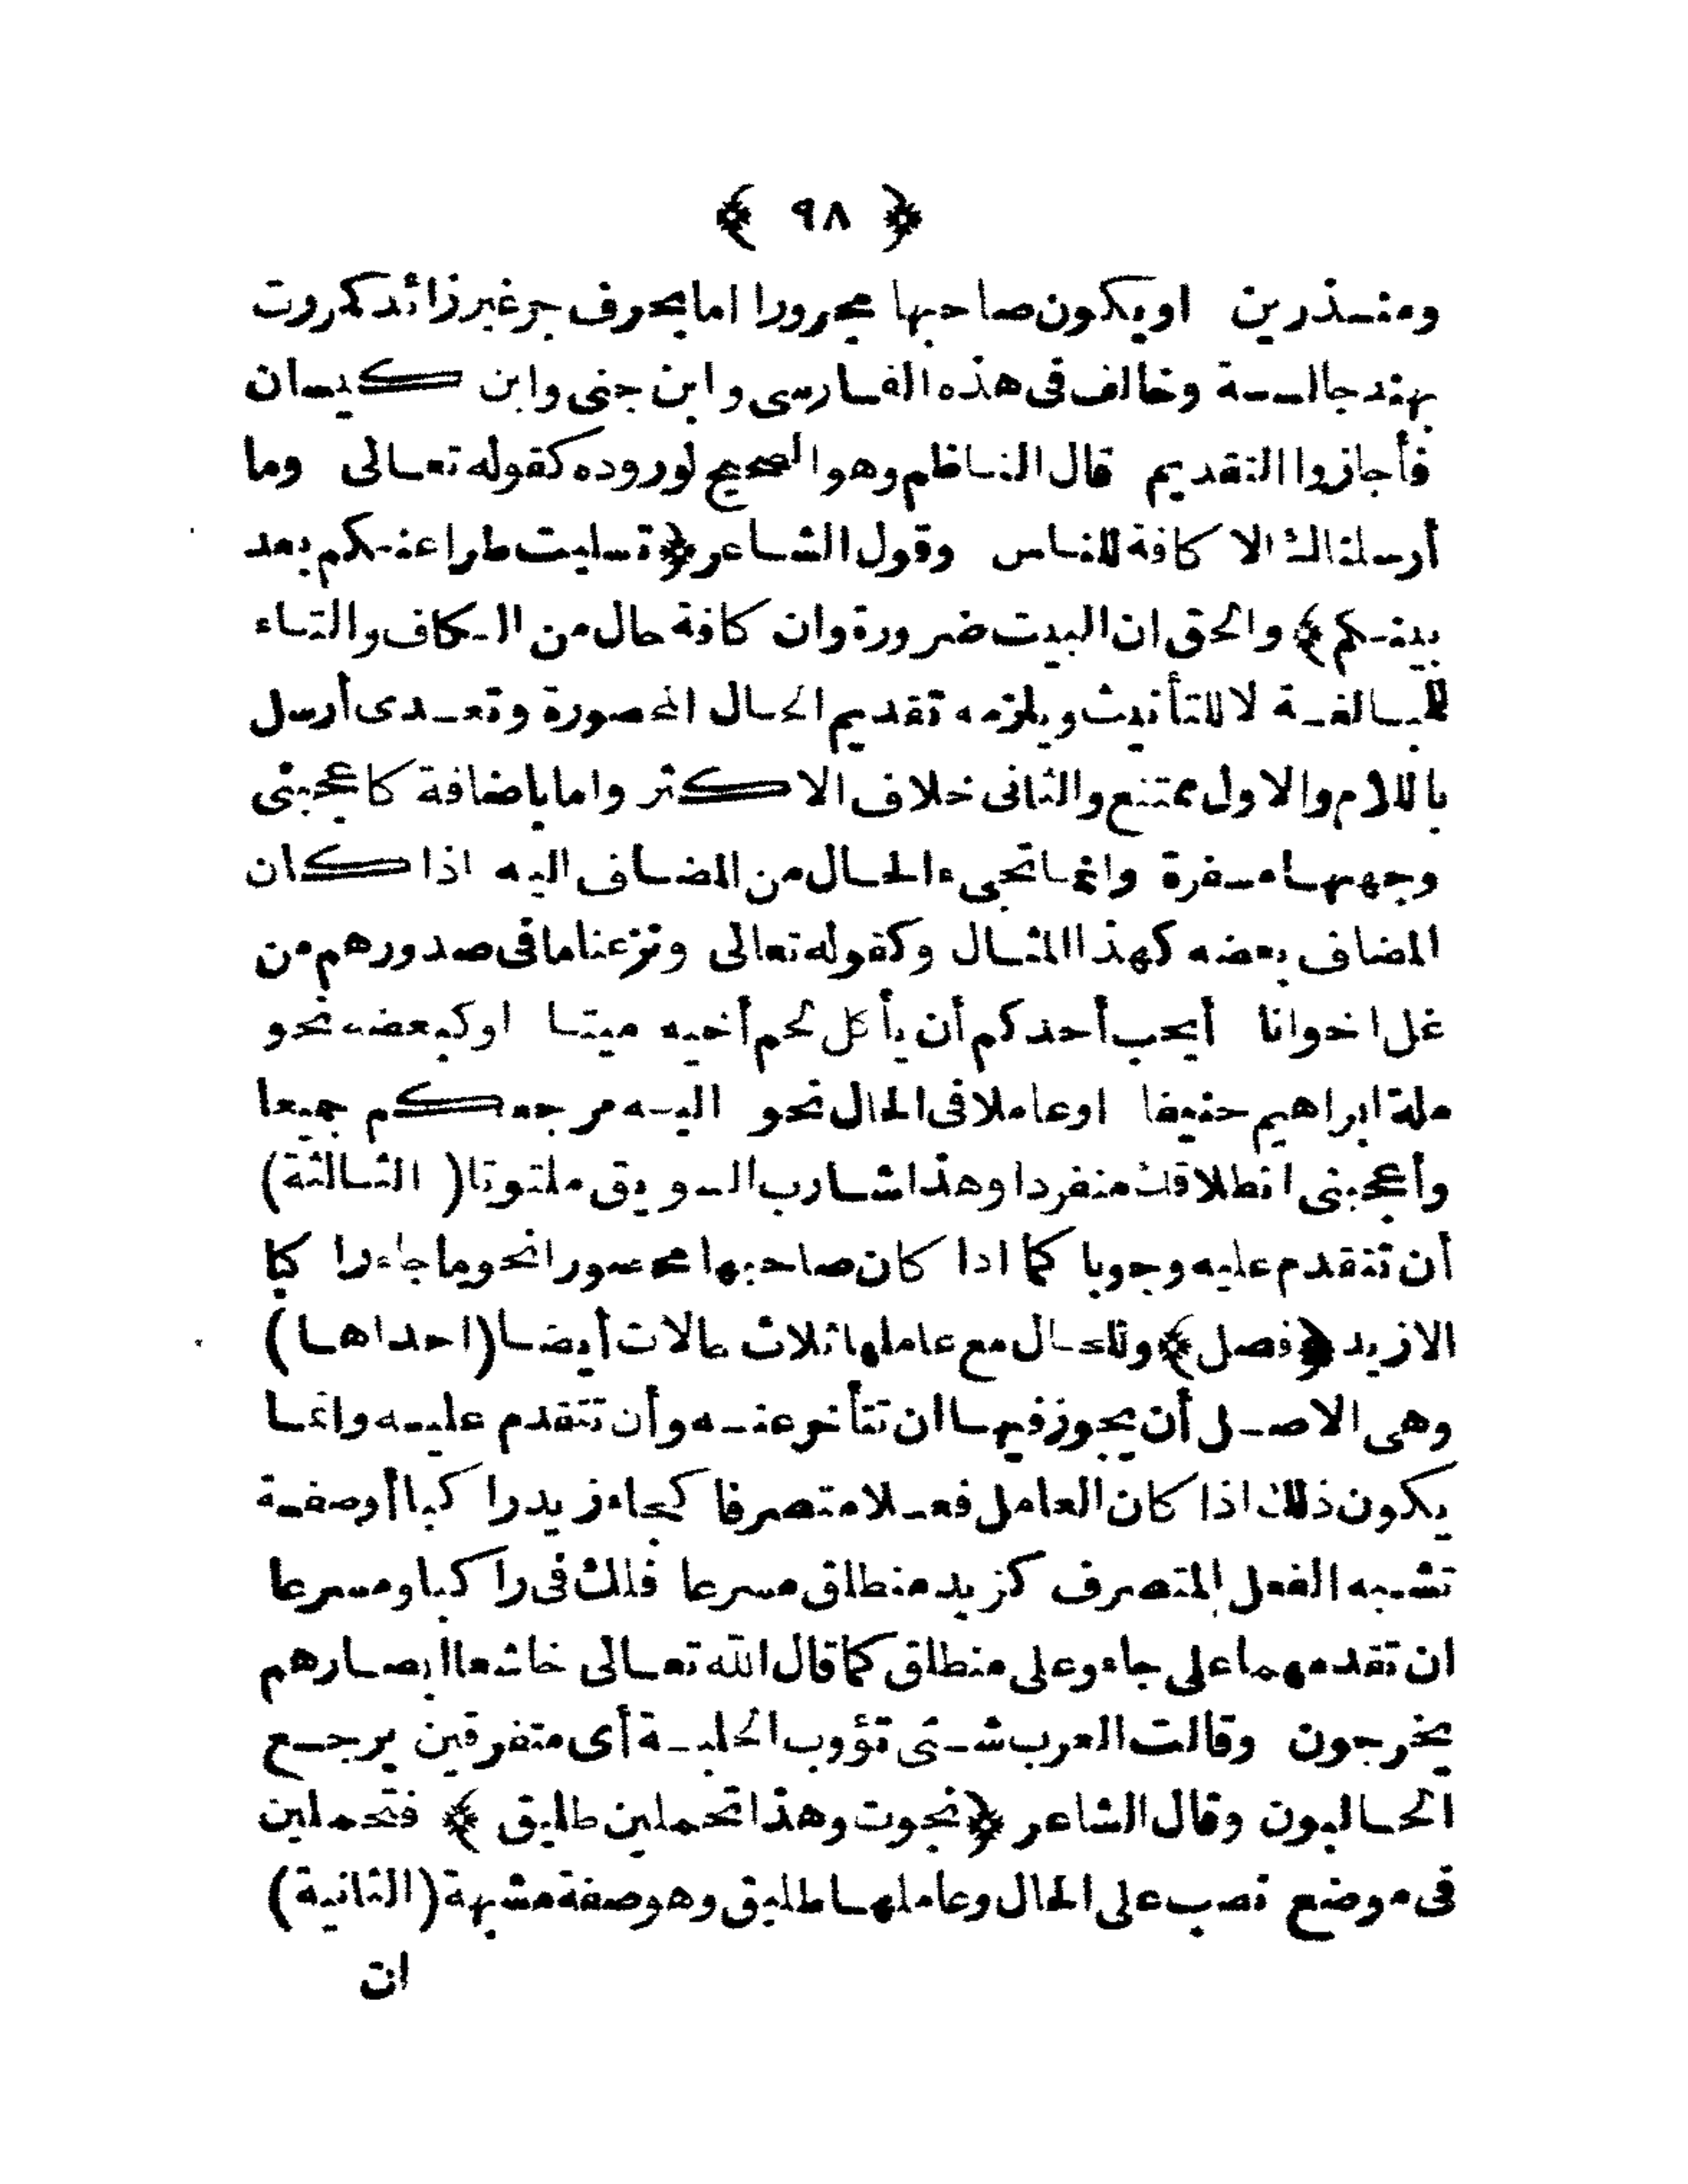 ﴿ ٩٨ ﴾
ومنذرين اويكون صاحبها مجرورا اما بحرف جر غير زائد كمررت
بهند جالسة وخالف فى هذه الفارسى وابن جنى وابن كيسان
فأجازوا التقديم قال الناظم وهو الصحيح لوروده كقوله تعالى وما
أرسلناك الا كافة للناس وقول الشاعر ﴿تسليت طرا عنكم بعد
بينكم﴾ والحق ان البيت ضرورة وان كافة حال من الكاف والتاء
للمبالغة لا للتأنيث ويلزمه تقديم الحال المحصورة وتعدى أرسل
باللام والاول ممتنع والثانى خلاف الاكثر واما باضافة كاعجبنى
وجهها مسفرة وانما تجىء الحال من المضاف اليه اذا كان
المضاف بعضه كهذا المثال وكقوله تعالى ونزعنا ما فى صدورهم من
غل اخوانا أيحب أحدكم أن يأكل لحم أخيه ميتا اوكبعضه نحو
ملة ابراهيم حنيفا اوعاملا فى الحال نحو اليه مرجعكم جميعا
وأعجبنى انطلاقك منفردا وهذا شارب السويق ملتوتا (الثالثة)
أن تتقدم عليه وجوبا كما اذا كان صاحبها محصورا نحو ما جاء راكبا
الا زيد ﴿فصل﴾ وللحال مع عاملها ثلاث حالات أيضا (احداها)
وهى الاصل أن يجوز فيها ان تتأخر عنه وأن تتقدم عليه وانما
يكون ذلك اذا كان العامل فعلا متصرفا كجاء زيد راكبا أوصفة
تشبه الفعل المتصرف كزيد منطلق مسرعا فلك فى راكبا ومسرعا
ان تقدمهما على جاء وعلى منطلق كما قال الله تعالى خاشعا ابصارهم
يخرجون وقالت العرب شتى تؤوب الحلبة أى متفرقين يرجع
الحالبون وقال الشاعر ﴿نجوت وهذا تحملين طليق﴾ فتحملين
فى موضع نصب على الحال وعاملها طليق وهو صفة مشبهة (الثانية)
ان